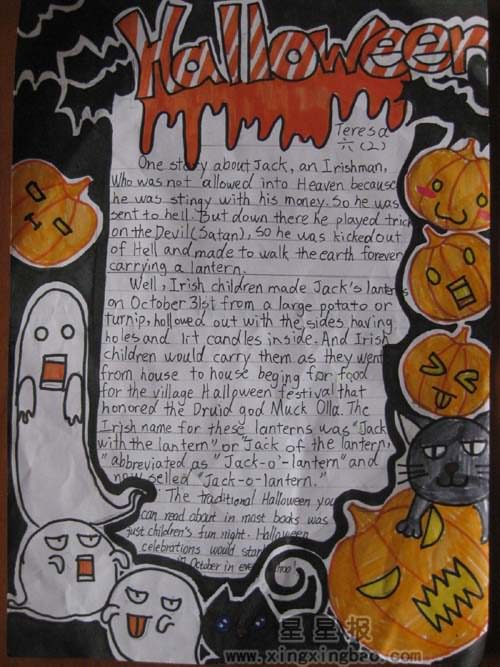 Halloween
Teresa
六(2)
One story about Jack, an Irishman,
Who was not allowed into Heaven because
he was stingy with his money. So he was
sent to hell. But down there he played trick
on the Devil(Satan), So he was kicked out
of Hell and made to walk the earth forever
carrying a lantern.
Well, Irish children made Jack's lanterns
on October 31st from a large potato or
turnip, hollowed out with the sides having
holes and lit candles inside. And Irish
children would carry them as they went
from house to house beging for food
for the village Halloween festival that
honored the Druid god Muck Olla. The
Irish name for these lanterns was "Jack
with the lantern" or "Jack of the lantern,
" abbreviated as "Jack-o'-lantern" and
now selled "Jack-o-lantern."
The traditional Halloween you
can read about in most books was
just children's fun night. Halloween
celebrations would start
October in every
星星报
www.xingxingbao.com